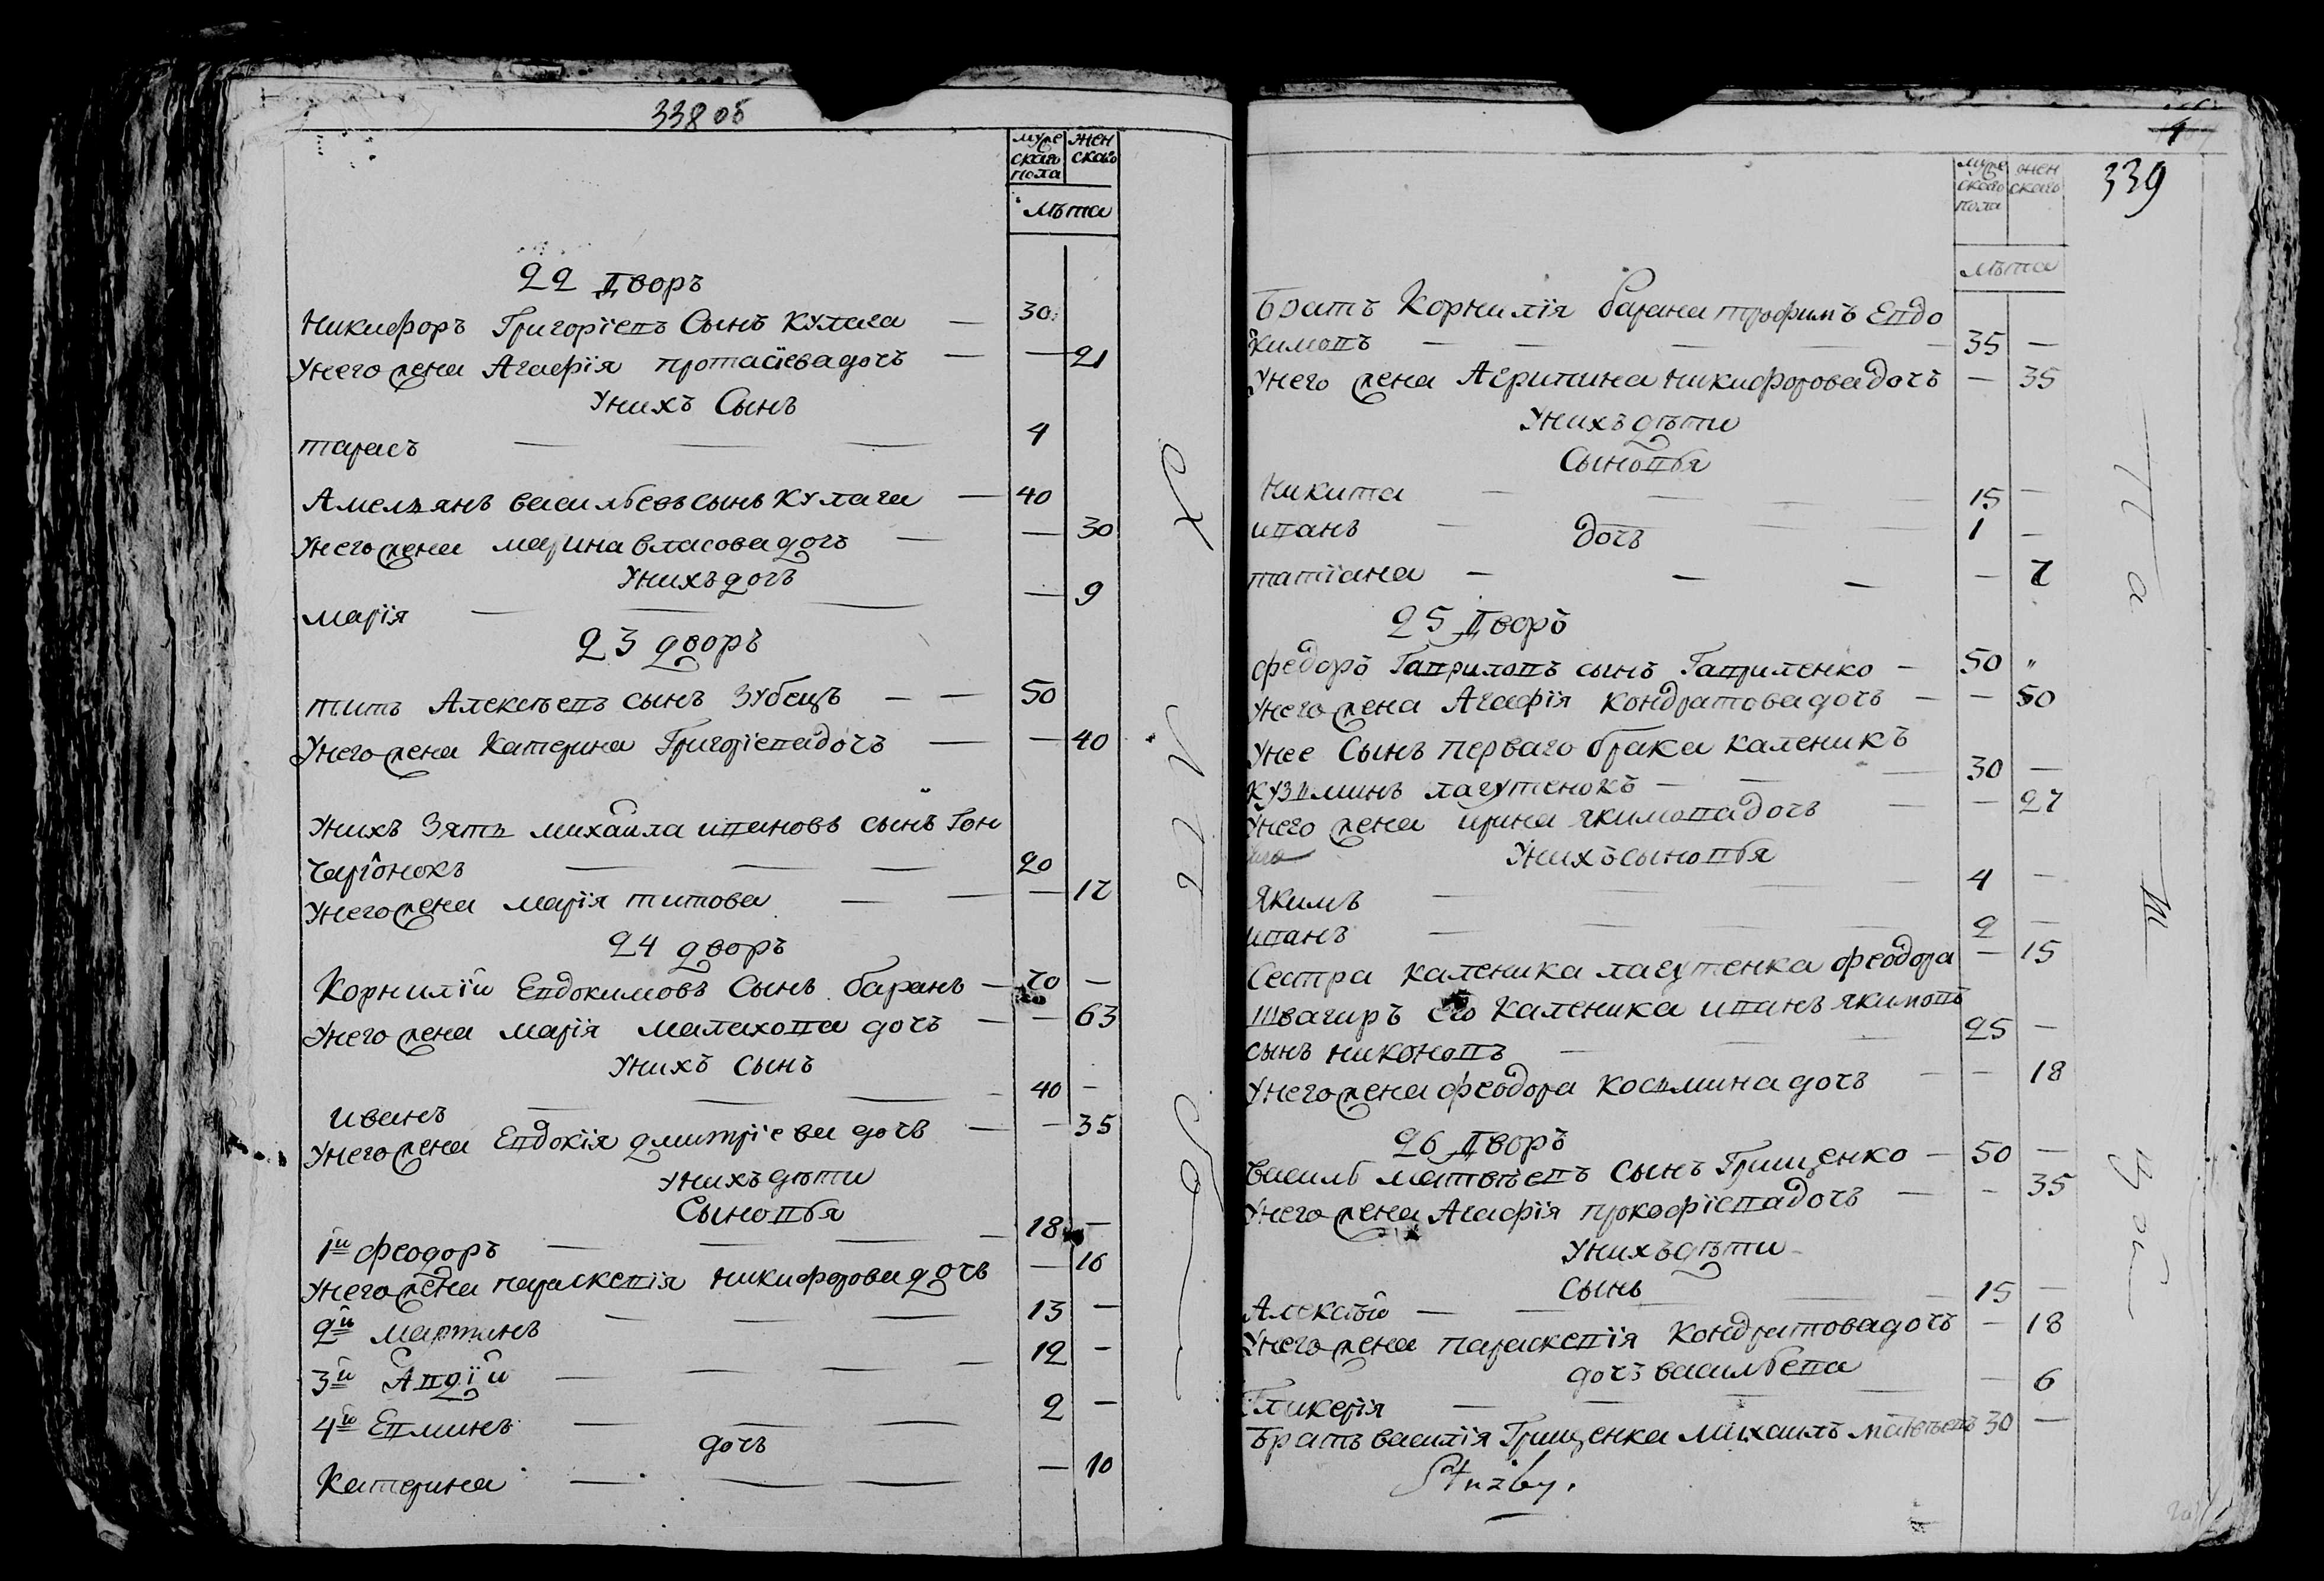 338 об
мужескаго пола
женскаго
лѣта
22 дворъ
Никифоръ Григоріевъ Сынъ Кулага — 30
У него жена Агафія протасіева дочь — — 21
У нихъ Сынъ
тарасъ — — — 4
Амельянъ васильевъ сынъ Кулага — 40
У него жена марина власова дочь — — 30
У нихъ дочь
марія — — — — 9
23 дворъ
титъ Алексѣевъ сынъ Зубецъ — — 50
У него жена Катерина Григоріева дочь — — 40
У нихъ Зять михайла ивановъ сынъ Гон
чаріонокъ — — — 20
У него жена марія титова — — — 17
24 дворъ
Корнилій Евдокимовъ Сынъ баранъ — 70 —
У него жена марія малахова дочь — — 63
У нихъ сынъ
иванъ — — — — 40 —
У него жена Евдокія дмитріева дочь — — 35
У нихъ дѣти
Сыновья
1й феодоръ — — — — 18 —
У него жена параскевія никифорова дочь — 16
2й мартинъ — — — 13 —
3й Авдій — — — — 12 —
4й Евминъ — — — 2 —
дочь
Катерина — — — — 10
339
мужескаго пола
женскаго
лѣта
Братъ Корнилія барана трофимъ Евдо
кимовъ — — — — 35 —
У него жена Агрипина никифорова дочь — 35
У нихъ дѣти
Сыновья
Никита — — — 15 —
иванъ — — — 1 —
дочь
татіана — — — — 7
25 дворъ
федоръ Гавриловъ сынъ Гавриленко — 50 "
У него жена Агафія Кондратова дочь — — 50
У нее Сынъ перваго брака каленикъ
кузминъ лагутенокъ — — — 30 —
У него жена ирина якимова дочь — — — 27
У нихъ сыновья
Якимъ — — — 4 —
иванъ — — — 2 —
Сестра каленика лагутенка феодора — 15
Швагиръ его каленика иванъ якимовъ
сынъ никоновъ — — — 25 —
У него жена феодора козьмина дочь — — 18
26 дворъ
василь матвѣевъ сынъ Грищенко — 50 —
У него жена Агафія прокофіева дочь — — 35
У нихъ дѣти
сынъ
Алексѣй — — — — 15 —
У него жена параскевія Кондратова дочь — 18
дочь васильева
Гликерія — — — — 6
Братъ василія Грищенка михаилъ матвѣевъ 30 —